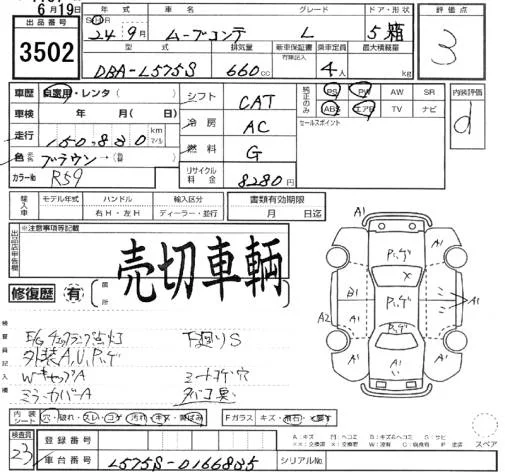 6月19日
出品番号
3502
年式 車名 グレード ドア・形状
S・H・R
24年9月 ムーブコンテ L 5箱
型式 排気量 新車保証書 有際記入 乗車定員 最大積載量
DBA-L575S 660cc 4人 kg
評価点
3
車歴 自家用・レンタ( )
車検 年 月( 日)
走行 150,830 km マイル
色 元色 ブラウン→(替 )
カラー№ R59
シフト CAT
冷房 AC
燃料 G
リサイクル料金 8280円
純正のみ
PS PW AW SR
ABS エアB TV ナビ
セールスポイント
内装評価
d
輸入車
モデル年式 ハンドル 輸入区分
右H・左H ディーラー・並行
書類有効期限
月 日迄
※注意事項等記載
売切車輌
修復歴 有
箇所
検査員記入欄
E/Gチェックランプ点灯 下廻りS
外装A,U,Pハゲ
WキャップA シートコゲ穴
ミラーカバーA タバコ臭
内装シート 穴・破れ・スレ・コゲ・汚れ・キズ・
Fガラス キズ・飛石・
検査員
23
登録番号
車台番号 L575S-0166835
シリアル№
スペア
A1
Pハゲ
A1
A1
X
B1
Pハゲ
A1
A2
Pハゲ
A1
A1
A1